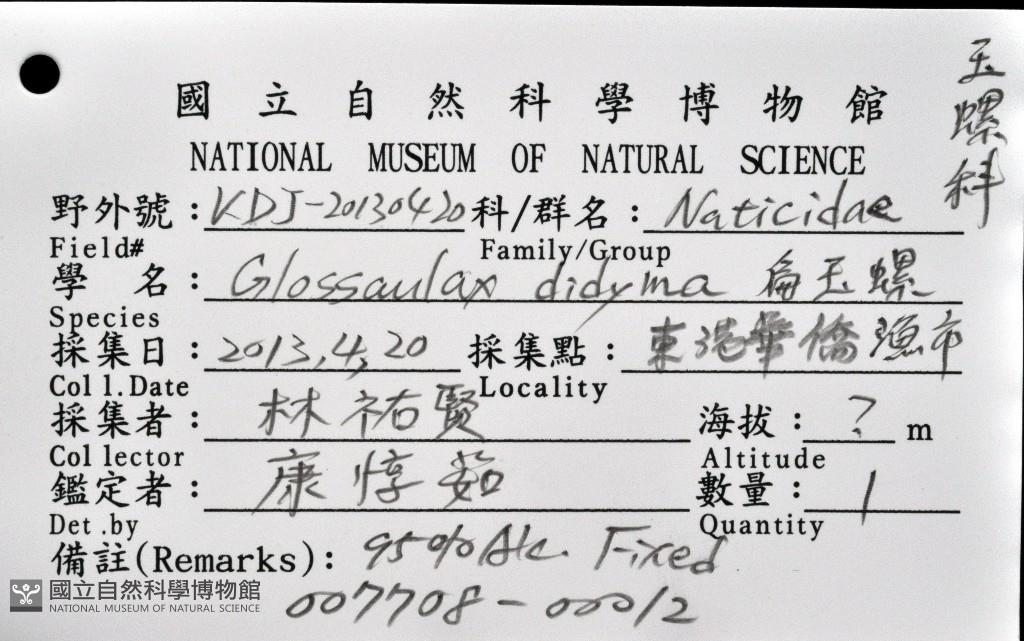 玉螺科
國立自然科學博物館
NATIONAL MUSEUM OF NATURAL SCIENCE
野外號：KDJ-20130420 科/群名：Naticidae
Field# Family/Group
學 名：Glossaulax didyma 扁玉螺
Species
採集日：2013,4,20 採集點：東港華僑漁市
Coll.Date Locality
採集者：林祐賢 海拔：? m
Collector Altitude
鑑定者：康惇茹 數量：1
Det.by Quantity
備註(Remarks)：95% Alc. Fixed
007708-00012
國立自然科學博物館
NATIONAL MUSEUM OF NATURAL SCIENCE